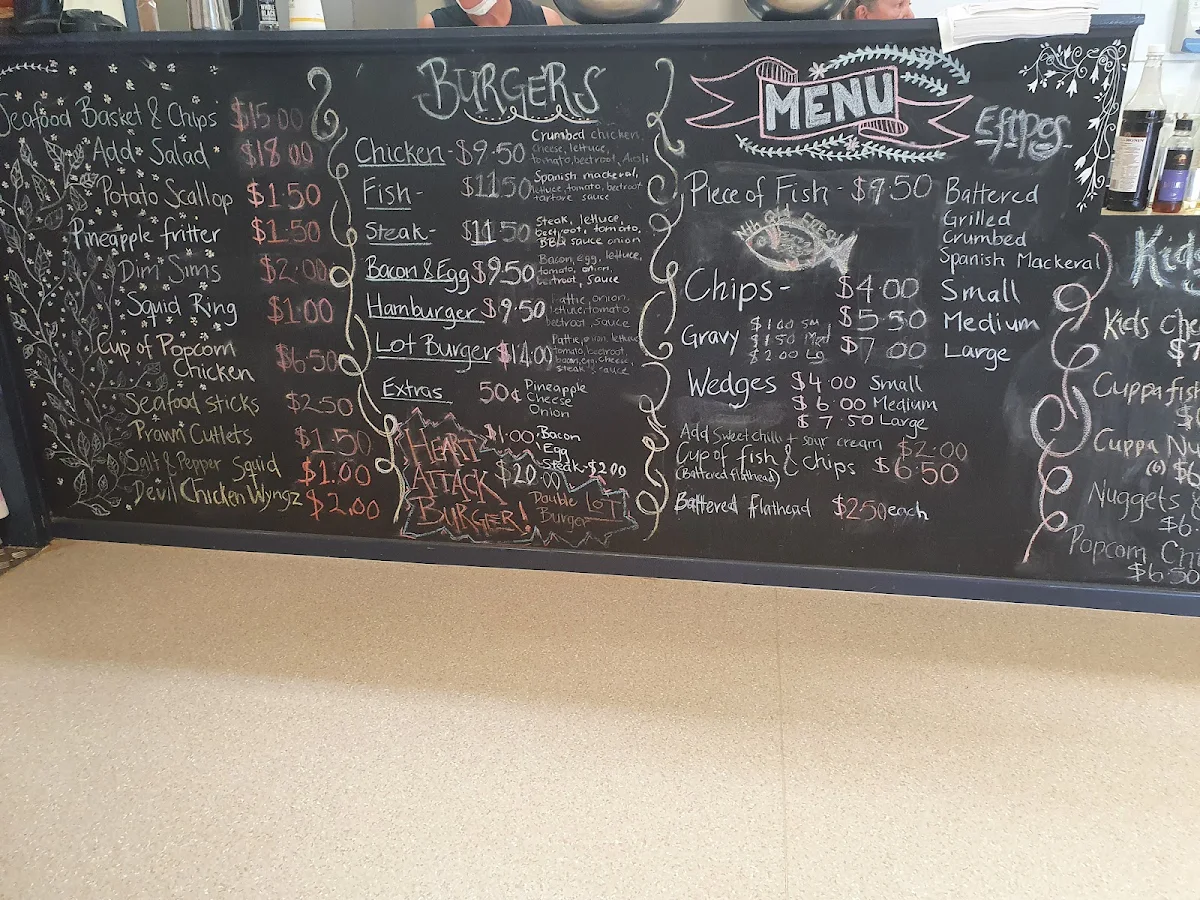 Seafood Basket & Chips $15.00
Add Salad $18.00
Potato Scallop $1.50
Pineapple fritter $1.50
Dim Sims $2.00
Squid Ring $1.00
Cup of Popcorn
Chicken $6.50
Seafood sticks $2.50
Prawn Cutlets $1.50
Salt & Pepper Squid $1.00
Devil Chicken Wyngz $2.00
BURGERS
Chicken - $9.50
Crumbed chicken,
cheese, lettuce,
tomato, beetroot, Aioli
Fish - $11.50
Spanish mackeral,
lettuce, tomato, beetroot
tartare sauce
Steak - $11.50
Steak, lettuce,
beetroot, tomato,
BBQ sauce onion
Bacon & Egg $9.50
Bacon, egg, lettuce,
tomato, onion,
beetroot, sauce
Hamburger $9.50
Pattie, onion,
lettuce, tomato
beetroot, sauce
Lot Burger $14.00
Pattie, onion, lettuce
tomato, beetroot,
bacon, egg, cheese,
steak & sauce
Extras 50¢ Pineapple
Cheese
Onion
$1.00 Bacon
Egg
Steak - $2.00
HEART
ATTACK
BURGER!
$20.00
Double LOT
Burger
MENU
Eftpos
Piece of Fish - $9.50 Battered
Grilled
Crumbed
Spanish Mackeral
Chips - $4.00 Small
$5.50 Medium
$7.00 Large
Gravy $1.00 Sm
$1.50 Med
$2.00 Lg
Wedges $4.00 Small
$6.00 Medium
$7.50 Large
Add Sweet chilli + sour cream $2.00
Cup of fish & chips $6.50
(Battered flathead)
Battered flathead $2.50 each
Kids
Kids Che
$7
Cuppa fis
Cuppa Nu
(6) $6
Nuggets
$6
Popcorn Ch
$6.50